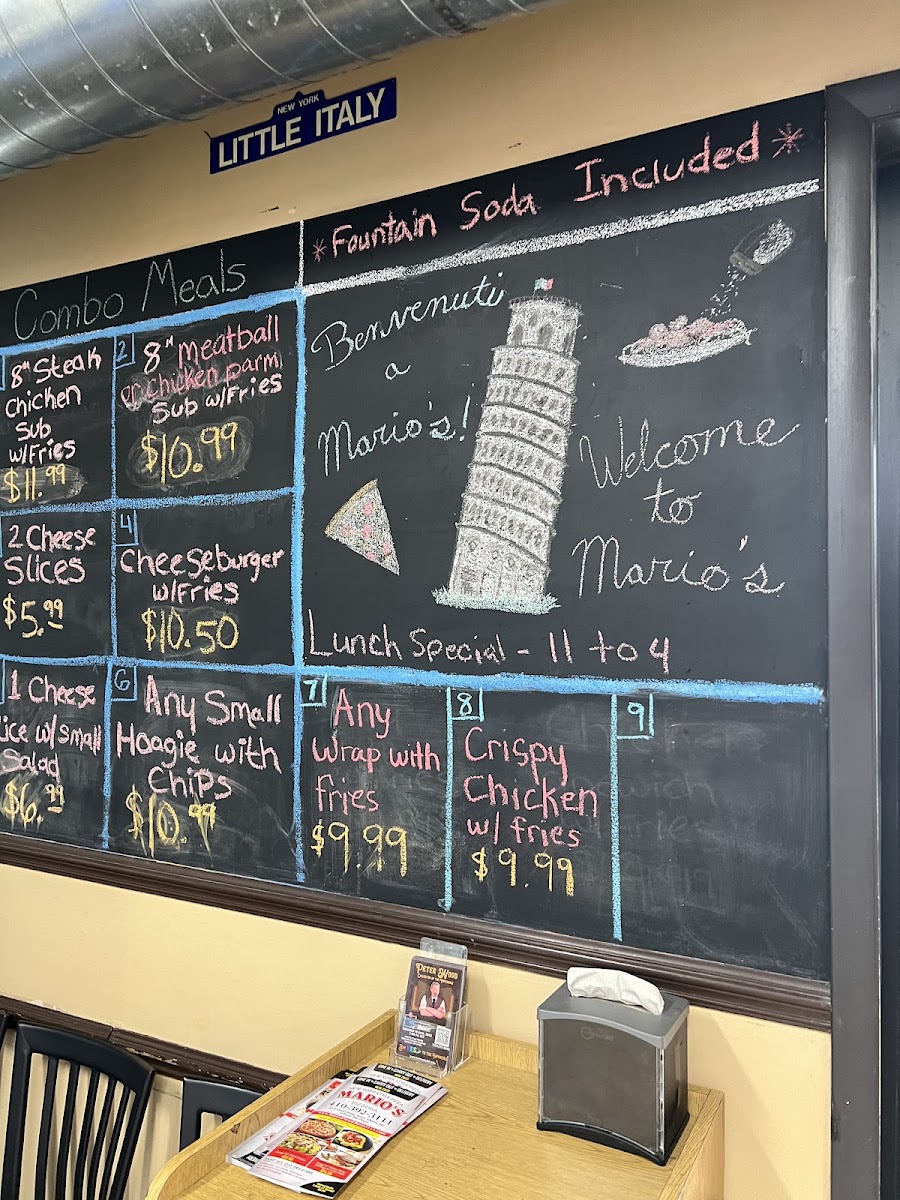 NEW YORK
LITTLE ITALY
*Fountain Soda Included*
Combo Meals
8" Steak
Chicken
Sub
w/Fries
$11.99
2
8" Meatball
or chicken parm
Sub w/Fries
$10.99
2 Cheese
Slices
$5.99
4
Cheeseburger
w/Fries
$10.50
1 Cheese
lice w/small
Salad
$6.99
6
Any Small
Hoagie with
Chips
$10.99
Benvenuti
a
Mario's!
Welcome
to
Mario's
Lunch Special - 11 to 4
7
Any
Wrap with
fries
$9.99
8
Crispy
Chicken
w/ fries
$9.99
9
PETER WOOD
MARIO'S
410-392-3111